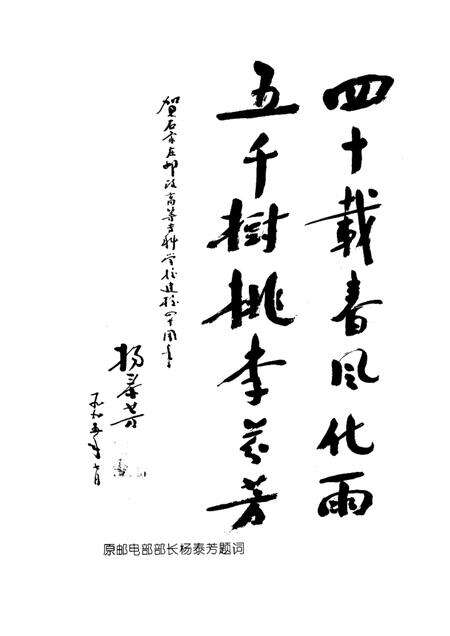 四十载春风化雨
五千树桃李芬芳
贺石家庄邮政高等专科学校建校四十周年
杨泰芳
一九九五年七月
原邮电部部长杨泰芳题词